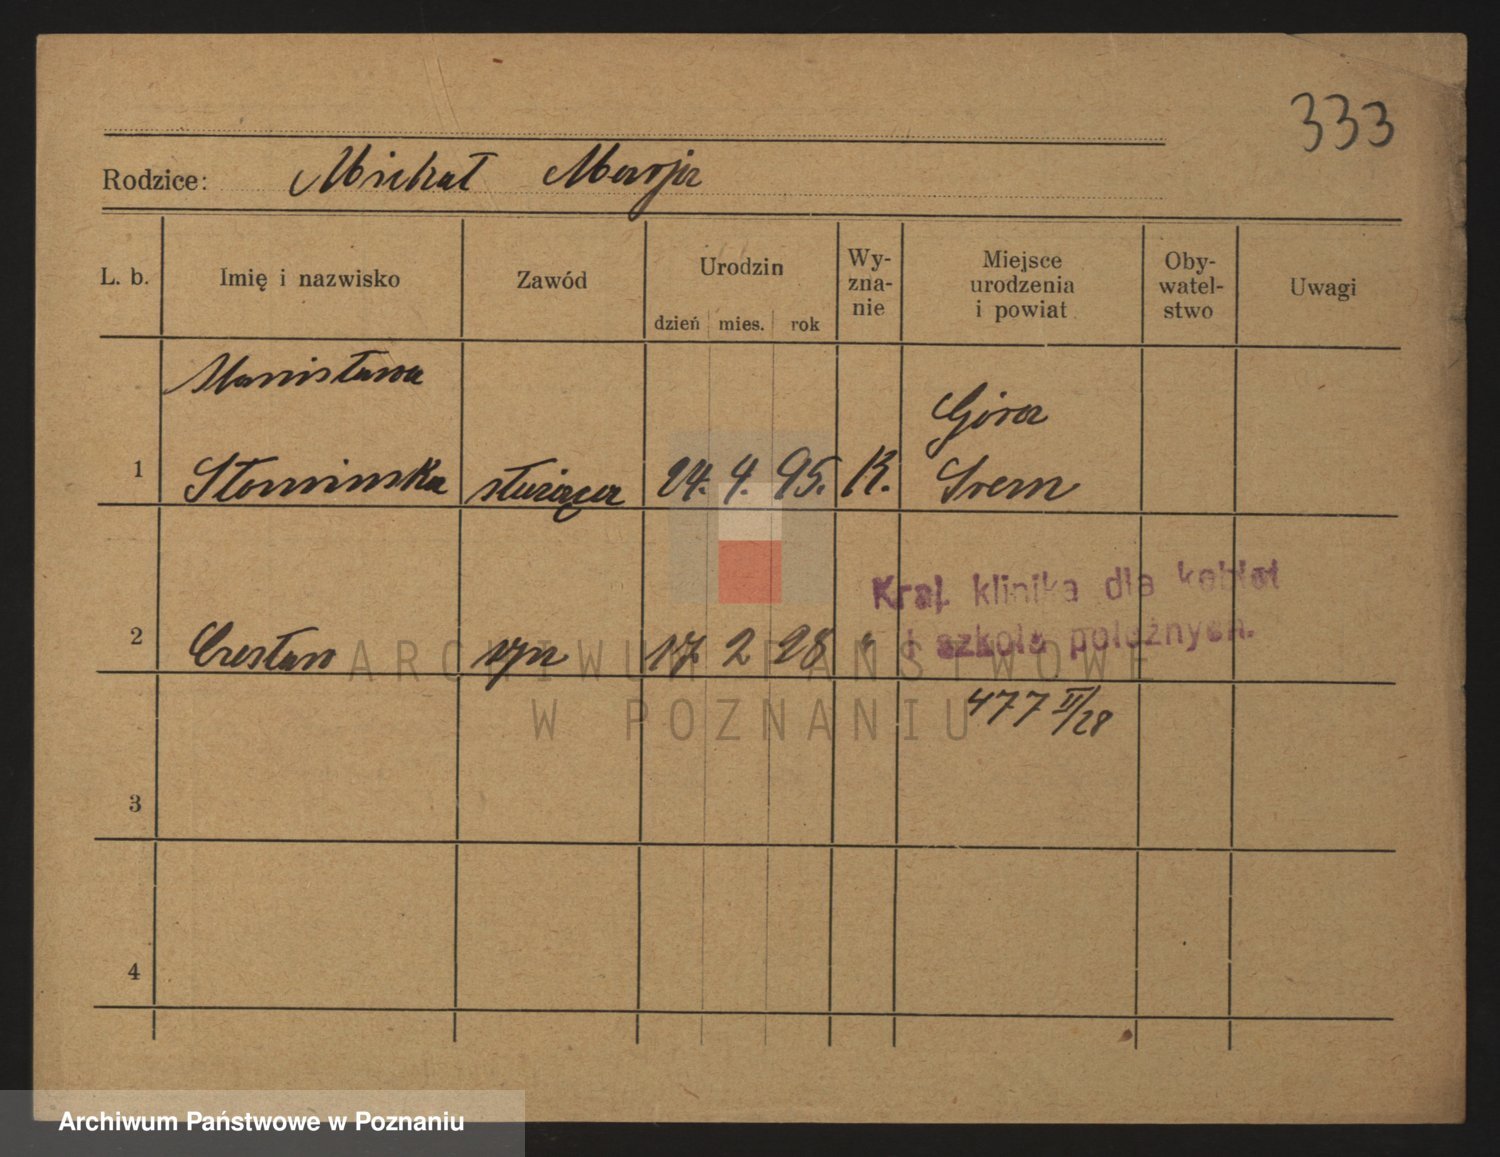 333
Rodzice: Michał Marja
L. b. Imię i nazwisko Zawód Urodzin Wy-zna-nie Miejsce urodzenia i powiat Oby-watel-stwo Uwagi
dzień mies. rok
Stanisława
Góra
1 Słominska służąca 24. 4. 95. K. Srem
Kraj. klinika dla kobiet
i szkoła położnych.
2 Czesław syn 17. 2 28 "
477 II/28
3
4
ARCHIWUM PAŃSTWOWE
W POZNANIU
Archiwum Państwowe w Poznaniu